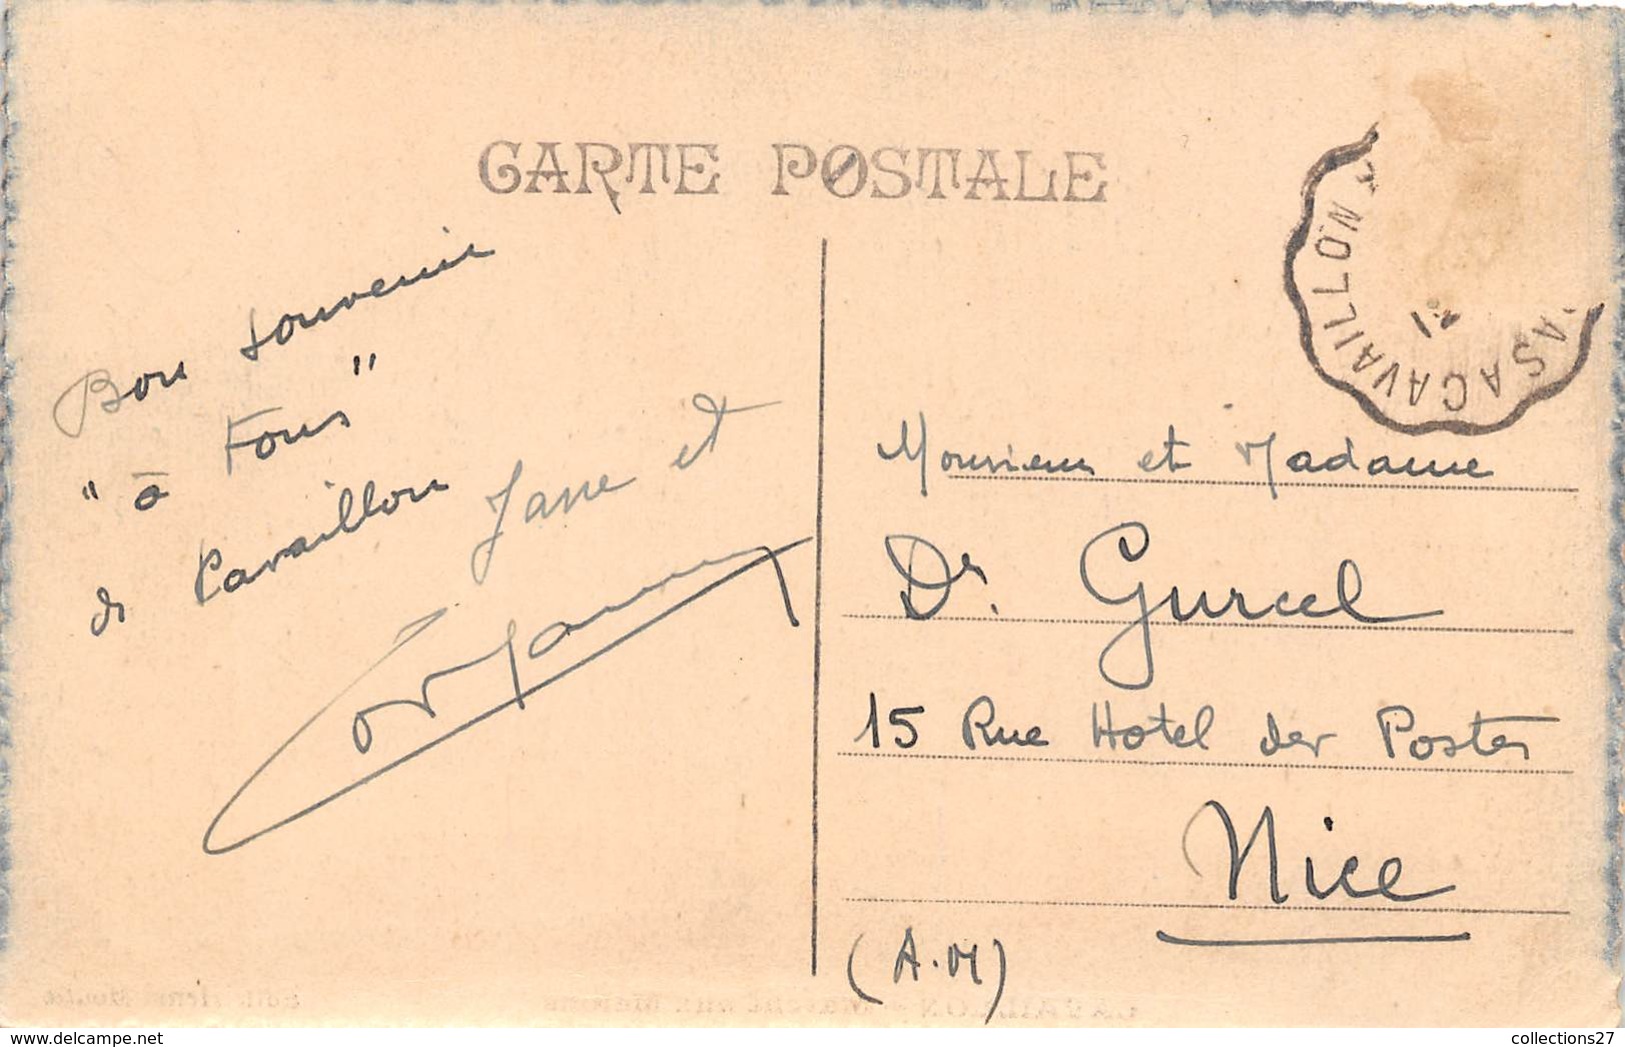 CARTE POSTALE
ASACAVAILLON
21
Bon souvenir
" à Tous "
de Cavaillon
Jane et
Monsieur et Madame
Dr. Gurcel
15 Rue Hotel des Postes
Nice
(A.M)
CAVAILLON - Marché aux Melons
collections27